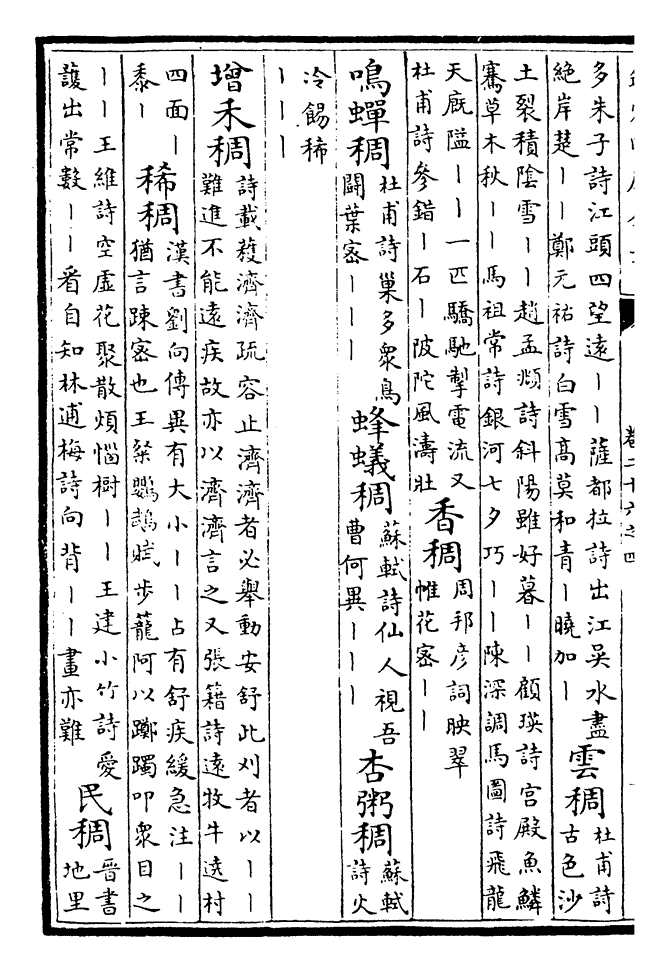 卷二十六之四
多朱子詩江頭四望遠丨丨薩都拉詩出江吳水盡
絶岸楚丨丨鄭元祐詩白雪髙莫和青丨曉加丨
雲稠
杜甫詩
古色沙
土裂積隂雪丨丨趙孟頫詩斜陽雖好暮丨丨顧瑛詩宫殿魚鱗
騫草木秋丨丨馬祖常詩銀河七夕巧丨丨陳深調馬圖詩飛龍
天廐隘丨丨一匹驕馳掣電流又
杜甫詩參錯丨石丨陂陀風濤壯
香稠
周邦彦詞映翠
帷花宻丨丨
鳴蟬稠
杜甫詩巢多衆鳥
鬬葉宻丨丨丨
蜂蟻稠
蘇軾詩仙人視吾
曹何異丨丨丨
杏粥稠
蘇軾
詩火
冷餳稀
丨丨丨
增禾稠
詩載穫濟濟疏容止濟濟者必舉動安舒此刈者以丨丨
難進不能速疾故亦以濟濟言之又張籍詩遠牧牛遶村
四面丨
黍丨
稀稠
漢書劉向傳異有大小丨丨占有舒疾緩急注丨丨
猶言踈宻也王粲鸚鵡賦步籠阿以躑躅叩衆目之
丨丨王維詩空虛花聚散煩惱樹丨丨王建小竹詩愛
護出常數丨丨看自知林逋梅詩向背丨丨畫亦難
民稠
晉書
地里